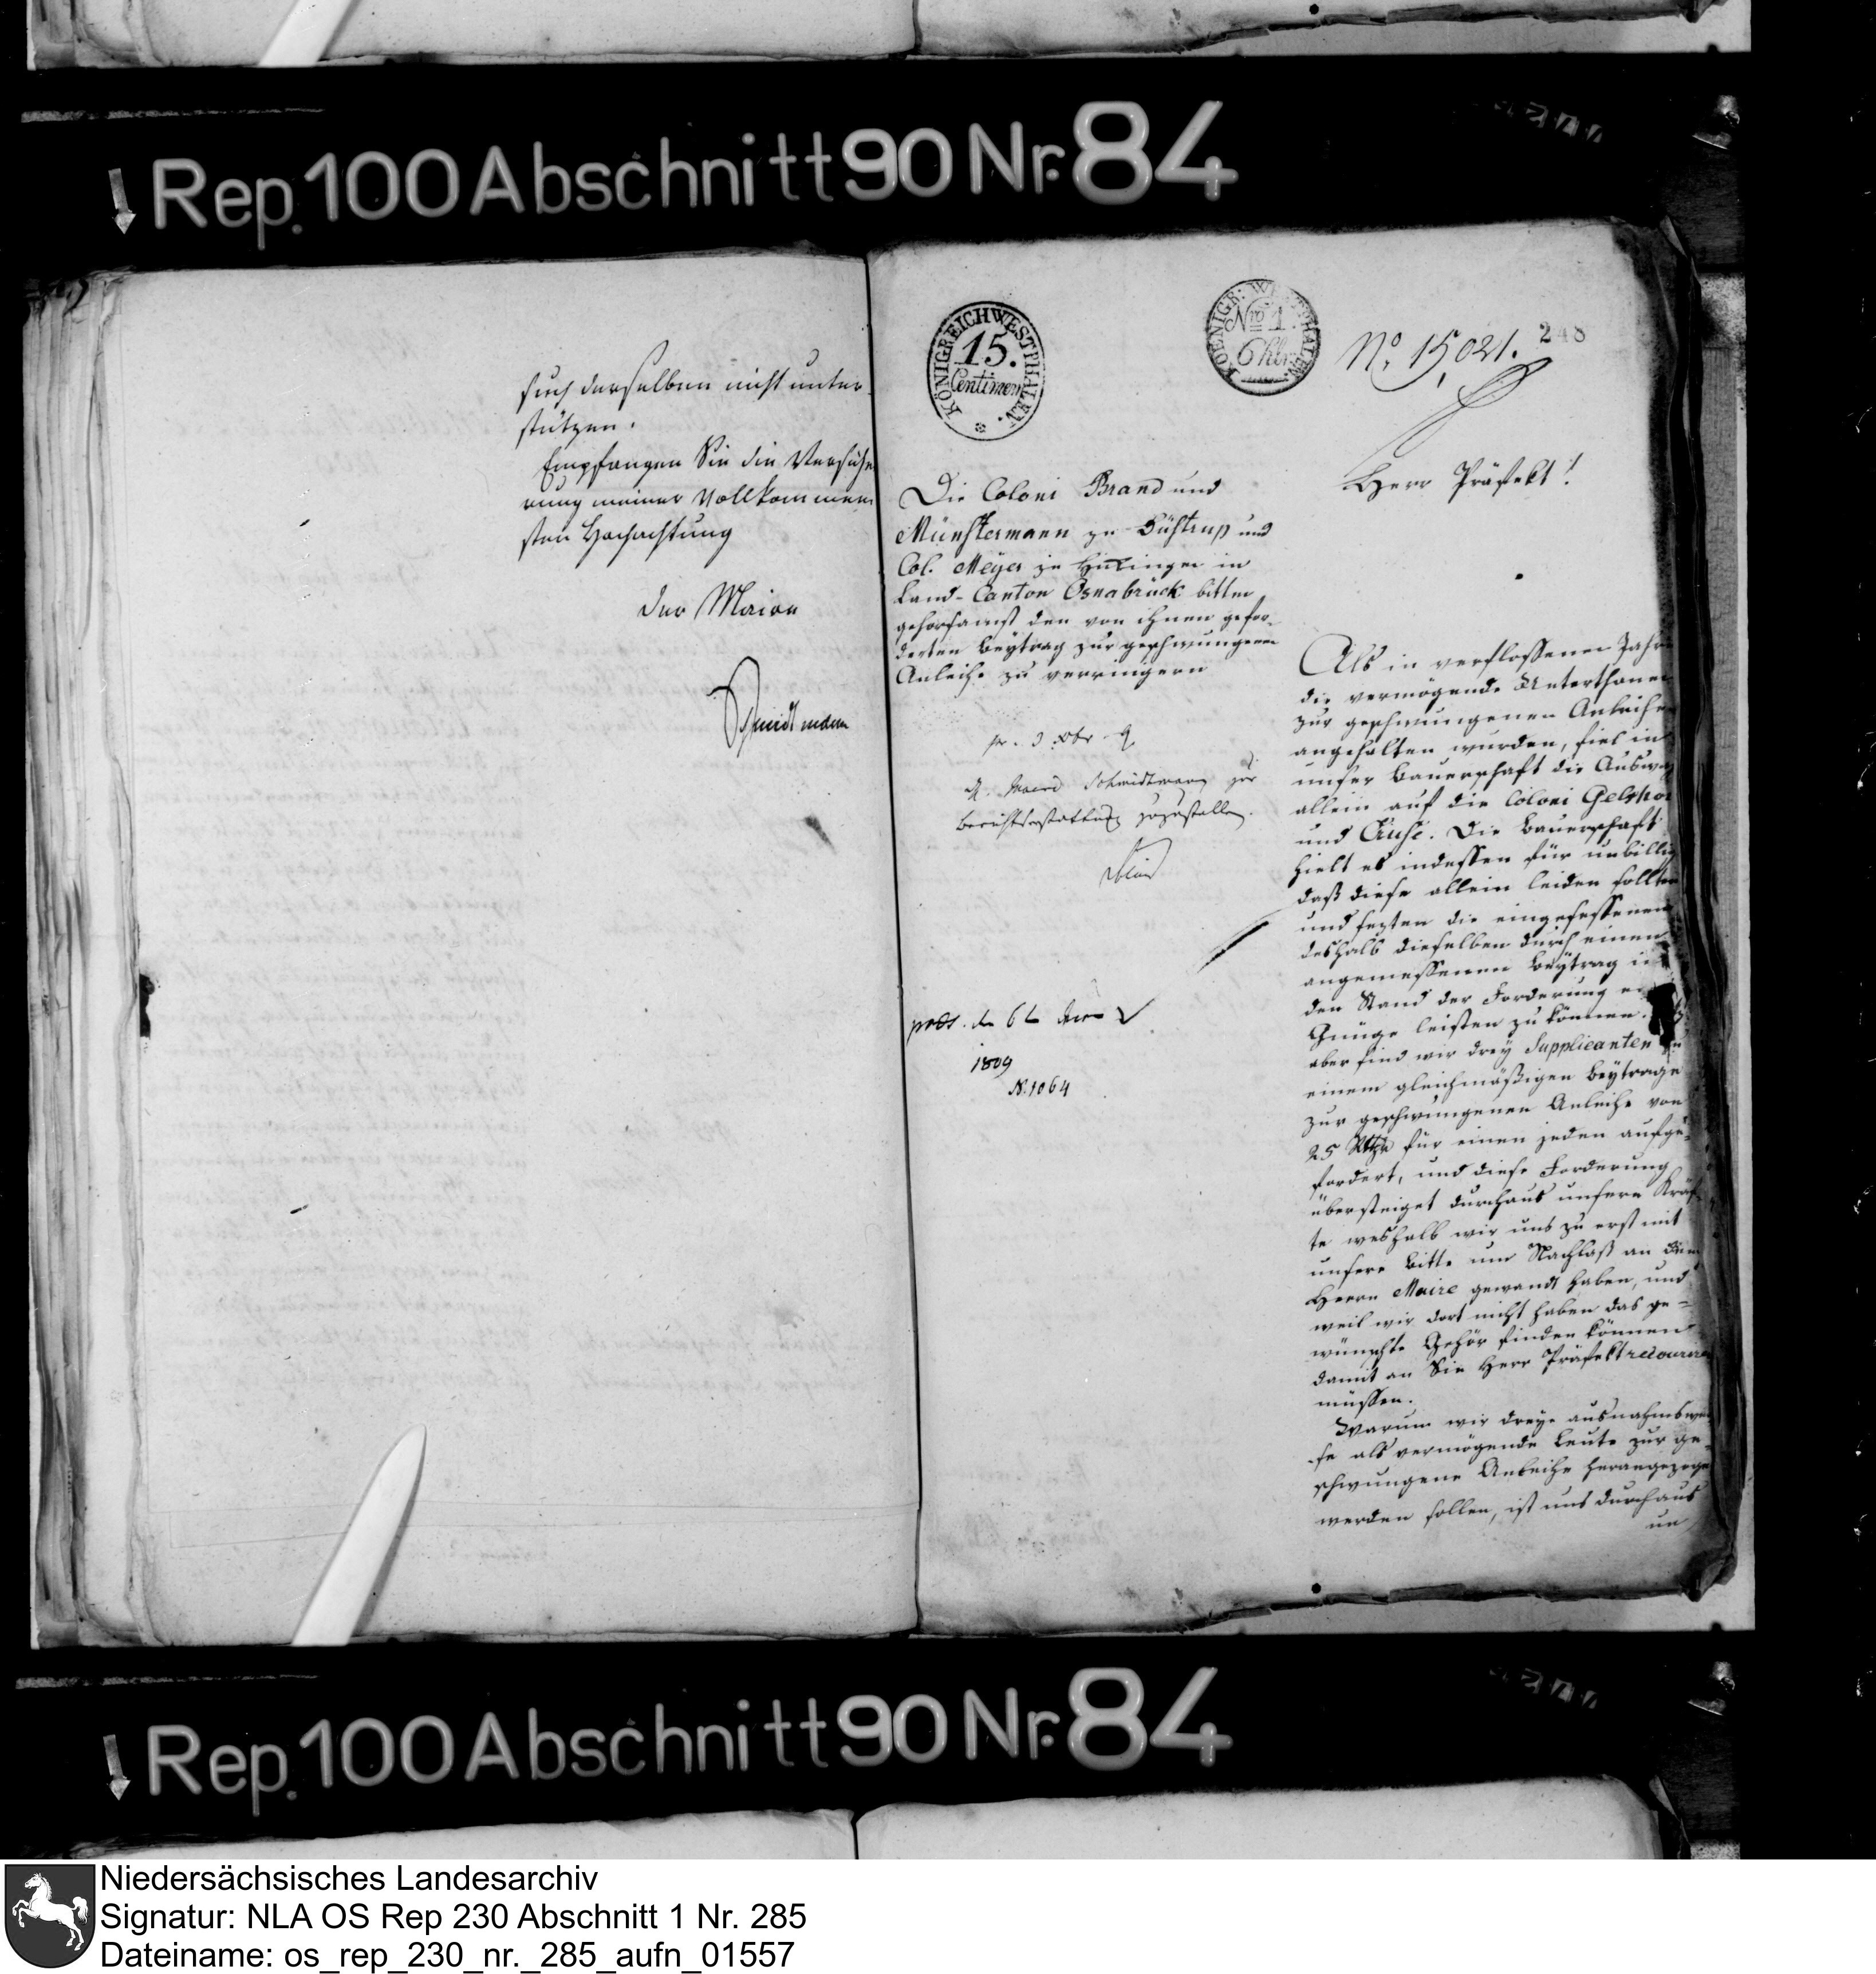 Rep. 100 Abschnitt 90 Nr. 84
such derselben nicht unter
stützen.
Empfangen Sie die Versiche
rung meiner Vollkommen
sten Hochachtung
Der Maire
Schmidtmann
KÖNIGREICH WESTPHALEN.
15.
Centimen
KOENIGR: WESTPHALEN.
Nro 1.
No. 15,021.
248
Die Coloni Brand und
Münstermann zu Düstrup und
Col. Meyer zu in
Land-Canton Osnabrück bitten
gehorsamst den von ihnen gefor-
derten Beytrag zur gezwungenen
Anleihe zu verringern
pr. 3 Xbr. 9
Maire Schmidtmann zur
Berichtserstattung zuzustellen.
1809
N. 1064
Herr Präfekt!
Als in verflossenen Jahre
die vermögende Unterthanen
zur gezwungenen Anleihe
angehalten wurden, fiel in
unser Bauerschaft die
allein auf die Coloni
und Cruse. Die Bauerschaft
hielt es indessen für unbillig
daß diese allein leiden sollten
und sezten die eingesessenen
deshalb dieselben durch einen
angemessenen Beytrag in
den Stand der Forderung ein
Gnüge leisten zu können.
aber sind wir drey Supplicanten zu
einem gleichmäßigen Beytrage
zur gezwungenen Anleihe von
25 für einen jeden aufge-
fordert, und diese Forderung
übersteiget durchaus unsere Kräf-
te weshalb wir uns zu erst mit
unsere Bitte um Nachlaß an den
Herrn Maire gewandt haben, und
weil wir dort nicht haben das ge-
wünschte Gehör finden können
damit an Sie Herr Präfekt recouriren
müssen.
Warum wir dreye ausnahmswei
se als vermögende Leute zur ge-
zwungene Anleihe herangezoge
werden sollen, ist uns durchaus
un
Rep. 100 Abschnitt 90 Nr. 84
Niedersächsisches Landesarchiv
Signatur: NLA OS Rep 230 Abschnitt 1 Nr. 285
Dateiname: os_rep_230_nr._285_aufn_01557